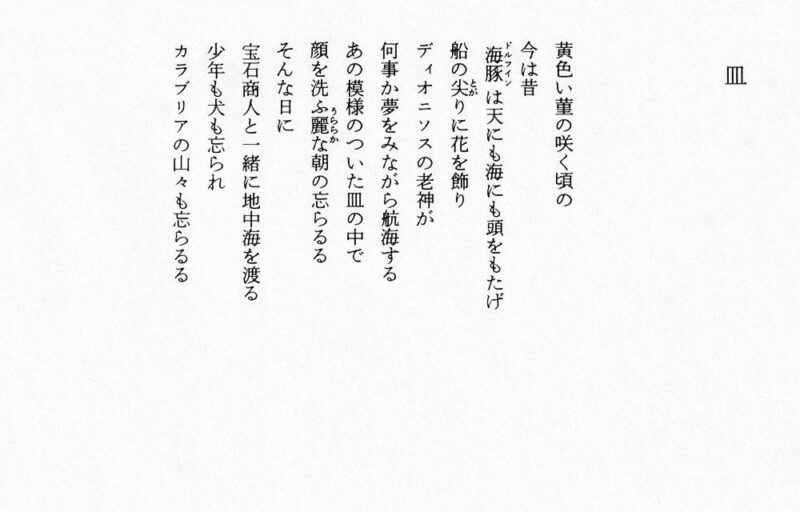 皿
黄色い菫の咲く頃の
今は昔
海豚は天にも海にも頭をもたげ
船の尖りに花を飾り
ディオニソスの老神が
何事か夢をみながら航海する
あの模様のついた皿の中で
顔を洗ふ麗な朝の忘らるる
そんな日に
宝石商人と一緒に地中海を渡る
少年も犬も忘られ
カラブリアの山々も忘らるる
ドルフイン
とが
うららか